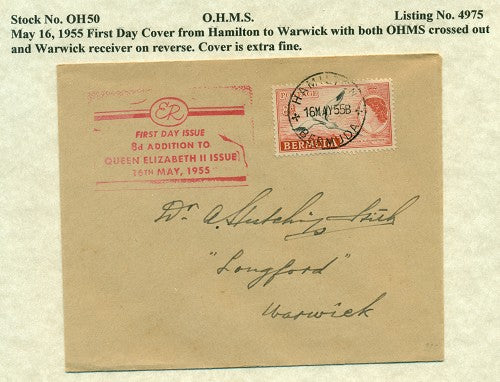 Stock No. OH50 O.H.M.S. Listing No. 4975
May 16, 1955 First Day Cover from Hamilton to Warwick with both OHMS crossed out
and Warwick receiver on reverse. Cover is extra fine.
ER
FIRST DAY ISSUE
8d ADDITION TO
QUEEN ELIZABETH II ISSUE
16TH MAY, 1955
HAMILTON
POSTAGE
16MAY55B
BERMUDA
BERMUDA
Dr. A. Hutchings
"Longford"
Warwick